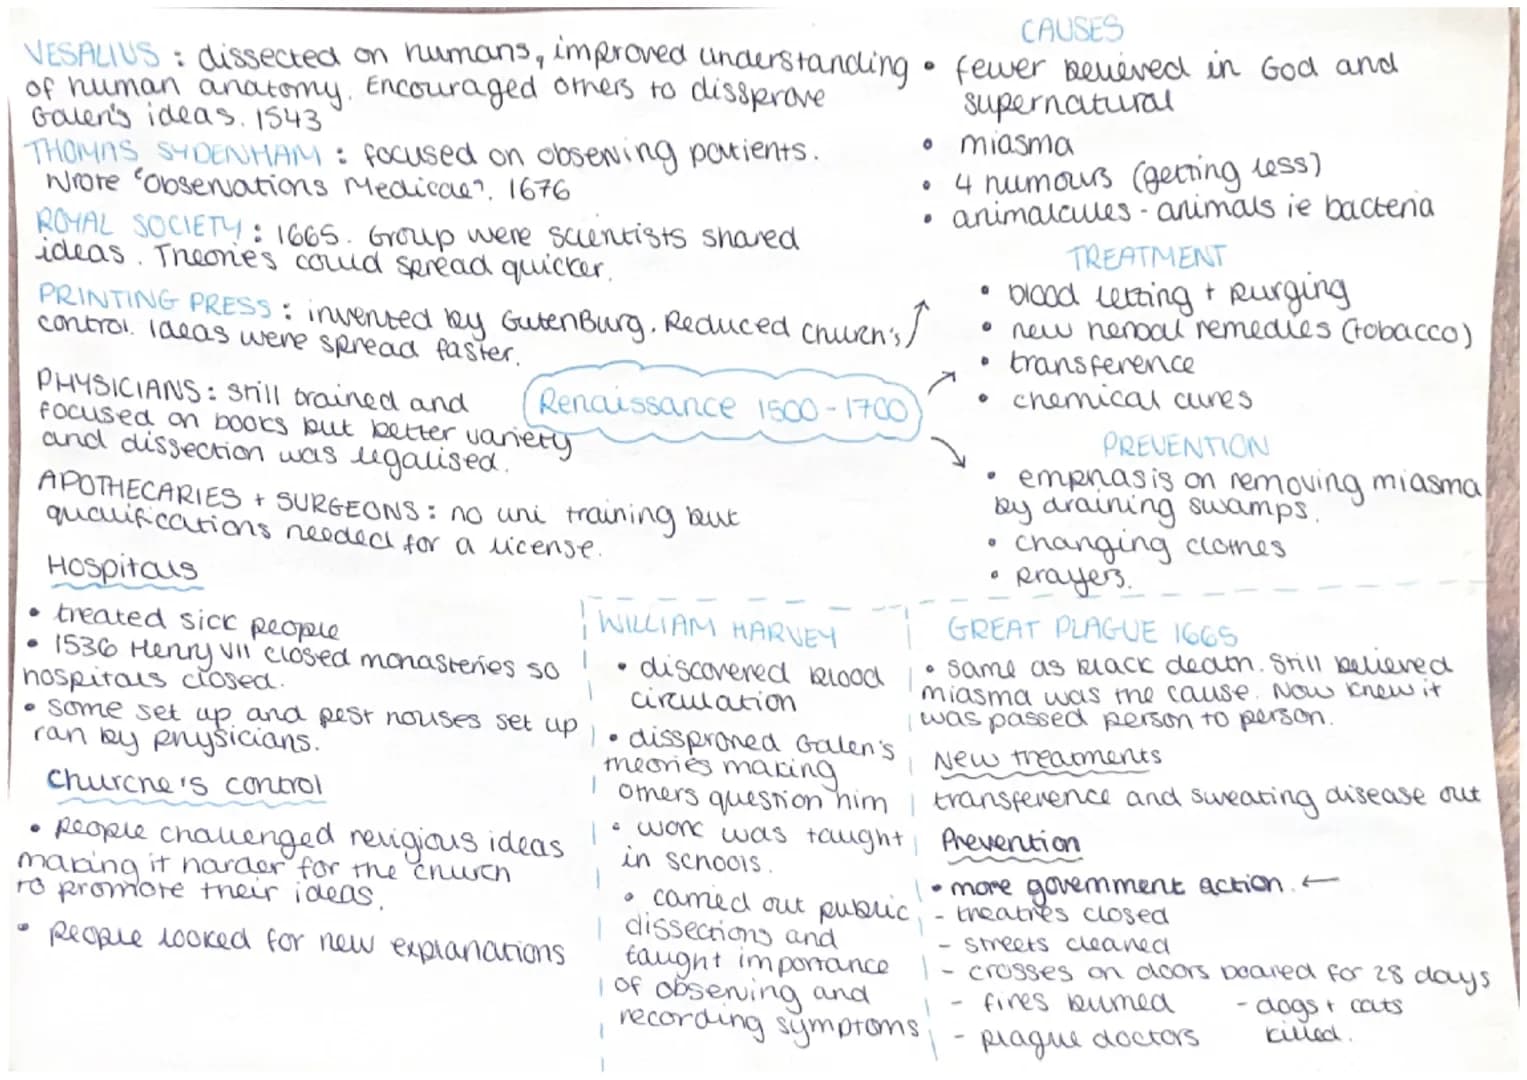 VESALIUS : dissected on humans, improved understanding
of human anatomy. Encouraged others to dissprove
Galen's ideas. 1543
THOMAS SYDENHAM : focused on observing patients.
Wrote "Observations Medicae". 1676
ROYAL SOCIETY : 1665. Group were scientists shared
ideas. Theories could spread quicker.
PRINTING PRESS : invented by GutenBurg. Reduced church's
control. Ideas were spread faster.
PHYSICIANS : still trained and
focused on books but better variety
and dissection was legalised.
APOTHECARIES + SURGEONS : no uni training but
qualifications needed for a license.
Hospitals
• treated sick people
• 1536 Henry VII closed monasteries so
hospitals closed.
• some set up and pest houses set up
ran by physicians.
Churche's control
• People challenged religious ideas
making it harder for the church
to promote their ideas.
• People looked for new explanations
Renaissance 1500-1700
CAUSES
• fewer believed in God and
supernatural
• miasma
• 4 humours (getting less)
• animalcules - animals ie bacteria
TREATMENT
• blood letting + purging
• new herbal remedies (tobacco)
• transference
• chemical cures
PREVENTION
• emphasis on removing miasma
by draining swamps.
• changing clothes
• prayers.
WILLIAM HARVEY
• discovered blood
circulation
• dissproned Galen's
theories making
others question him
• work was taught
in schools.
• carried out public
dissections and
taught importance
of observing and
recording symptoms
GREAT PLAGUE 1665
• same as black death. Still believed
miasma was the cause. Now knew it
was passed person to person.
New treatments
transference and sweating disease out
Prevention
• more government action. ←
- theatres closed
- streets cleaned
- crosses on doors boared for 28 days
- fires burned
- dogs + cats
killed.
- plague doctors